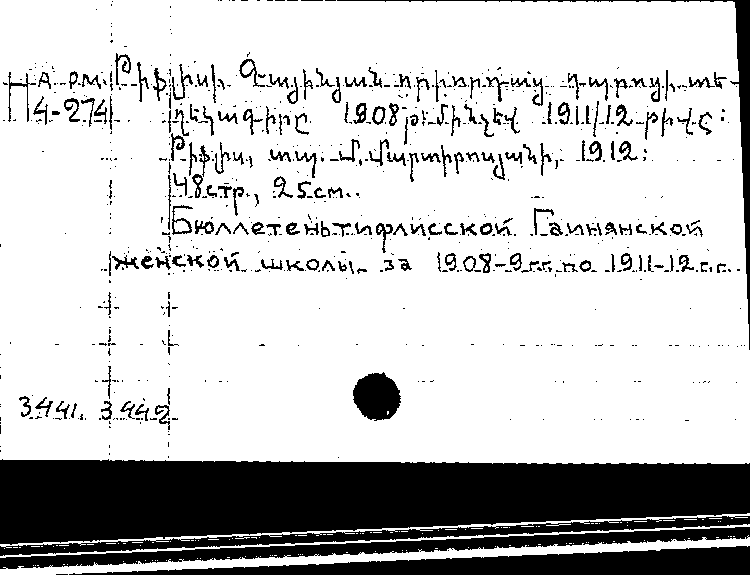 А рм. Թիֆլիսի Գայինյան օրիորդաց դպրոցի տե-
П 4-274 ղեկագիրը 1908թ. մինչև 1911/12 թիվը:
Թիֆլիս, տպ. Մ. Մարտիրոսյանի, 1912:
48стр., 25см.
Бюллетень тифлисской Гаинянской
женской школы за 1908-9гг. по 1911-12г.г.
3441. 3442